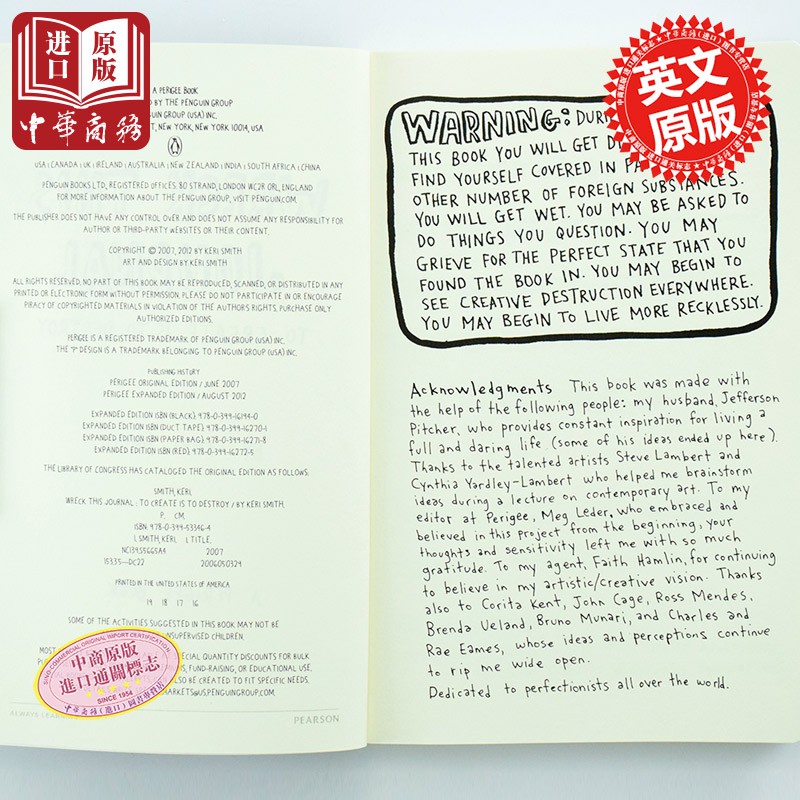 进口
原版
中華商務
英文
原版
A PERIGEE BOOK
ED BY THE PENGUIN GROUP
NGUIN GROUP (USA) INC.
T, NEW YORK, NEW YORK 10014, USA
USA | CANADA | UK | IRELAND | AUSTRALIA | NEW ZEALAND | INDIA | SOUTH AFRICA | CHINA
PENGUIN BOOKS LTD., REGISTERED OFFICES: 80 STRAND, LONDON WC2R ORL, ENGLAND
FOR MORE INFORMATION ABOUT THE PENGUIN GROUP, VISIT PENGUIN.COM.
THE PUBLISHER DOES NOT HAVE ANY CONTROL OVER AND DOES NOT ASSUME ANY RESPONSIBILITY FOR
AUTHOR OR THIRD-PARTY WEBSITES OR THEIR CONTENT.
COPYRIGHT © 2007, 2012 BY KERI SMITH
ART AND DESIGN BY KERI SMITH
ALL RIGHTS RESERVED. NO PART OF THIS BOOK MAY BE REPRODUCED, SCANNED, OR DISTRIBUTED IN ANY
PRINTED OR ELECTRONIC FORM WITHOUT PERMISSION. PLEASE DO NOT PARTICIPATE IN OR ENCOURAGE
PIRACY OF COPYRIGHTED MATERIALS IN VIOLATION OF THE AUTHOR'S RIGHTS. PURCHASE ONLY
AUTHORIZED EDITIONS.
PERIGEE IS A REGISTERED TRADEMARK OF PENGUIN GROUP (USA) INC.
THE "P" DESIGN IS A TRADEMARK BELONGING TO PENGUIN GROUP (USA) INC.
PUBLISHING HISTORY
PERIGEE ORIGINAL EDITION / JUNE 2007
PERIGEE EXPANDED EDITION / AUGUST 2012
EXPANDED EDITION ISBN (BLACK): 978-0-399-16194-0
EXPANDED EDITION ISBN (DUCT TAPE): 978-0-399-16270-1
EXPANDED EDITION ISBN (PAPER BAG): 978-0-399-16271-8
EXPANDED EDITION ISBN (RED): 978-0-399-16272-5
THE LIBRARY OF CONGRESS HAS CATALOGED THE ORIGINAL EDITION AS FOLLOWS:
SMITH, KERI.
WRECK THIS JOURNAL : TO CREATE IS TO DESTROY / BY KERI SMITH.
P. CM.
ISBN 978-0-399-53346-4
I. SMITH, KERI. I. TITLE.
NC1339.S665A4 2007
153.3'5—DC22 2006050324
PRINTED IN THE UNITED STATES OF AMERICA
19 18 17 16
SOME OF THE ACTIVITIES SUGGESTED IN THIS BOOK MAY NOT BE
UNSUPERVISED CHILDREN.
MOST
ECIAL QUANTITY DISCOUNTS FOR BULK
S, FUND-RAISING, OR EDUCATIONAL USE.
LSO BE CREATED TO FIT SPECIFIC NEEDS.
MARKETS@US.PENGUINGROUP.COM.
中商原版
進口通關標志
SINCE 1954
ALWAYS LEAR
PEARSON
WARNING: DURI
THIS BOOK YOU WILL GET DI
FIND YOURSELF COVERED IN PA
OTHER NUMBER OF FOREIGN SUBSTANCES.
YOU WILL GET WET. YOU MAY BE ASKED TO
DO THINGS YOU QUESTION. YOU MAY
GRIEVE FOR THE PERFECT STATE THAT YOU
FOUND THE BOOK IN. YOU MAY BEGIN TO
SEE CREATIVE DESTRUCTION EVERYWHERE.
YOU MAY BEGIN TO LIVE MORE RECKLESSLY.
Acknowledgments This book was made with
the help of the following people: my husband, Jefferson
Pitcher, who provides constant inspiration for living a
full and daring life (some of his ideas ended up here).
Thanks to the talented artists Steve Lambert and
Cynthia Yardley-Lambert who helped me brainstorm
ideas during a lecture on contemporary art. To my
editor at Perigee, Meg Leder, who embraced and
believed in this project from the beginning, your
thoughts and sensitivity left me with so much
gratitude. To my agent, Faith Hamlin, for continuing
to believe in my artistic/creative vision. Thanks
also to Corita Kent, John Cage, Ross Mendes,
Brenda Ueland, Bruno Munari, and Charles and
Rae Eames, whose ideas and perceptions continue
to rip me wide open.
Dedicated to perfectionists all over the world.